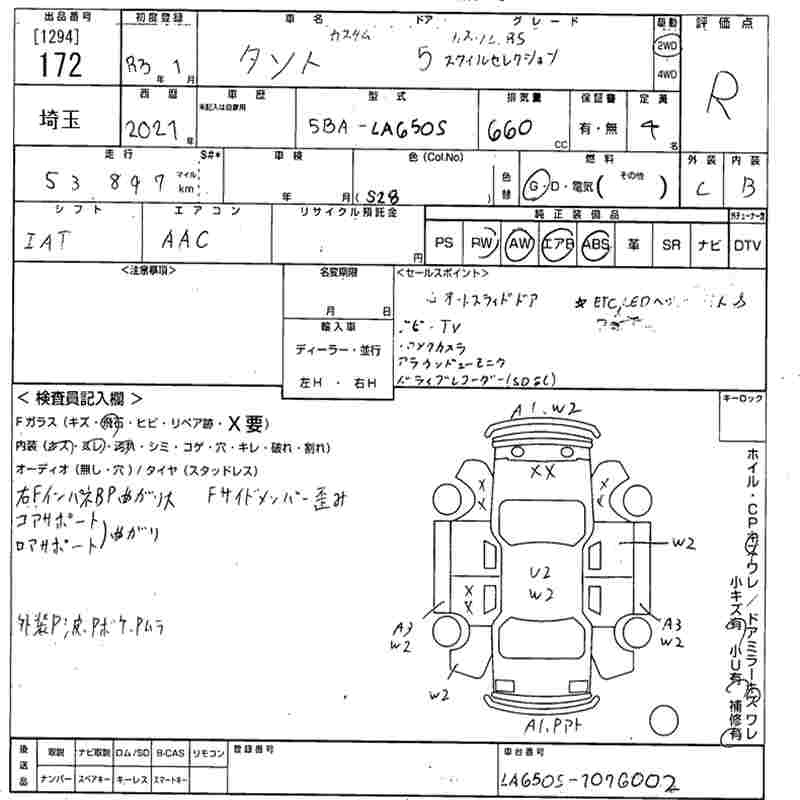 出品番号 初度登録 車名 ドア グレード 駆動 評価点
[1294] カスタム RS 2WD
172 R3年 1月 タント 5 スタイルセレクション 4WD R
西暦 車歴 型式 排気量 保証書 定員
未記入は自家用
埼玉 2021年 5BA-LA650S 660cc 有・無 4名
走行 S#* 車検 色(Col.No) 燃料 外装 内装
53 897 マイル km 年 月 (S28) 色替 G・D・電気( その他 ) C B
シフト エアコン リサイクル預託金 純正装備品 ガチューナー有
IAT AAC 円 PS PW AW エアB ABS 革 SR ナビ DTV
<注意事項> 名変期限 <セールスポイント>
月 日 オートスライドドア ☆ETC LEDヘッ
輸入車 ナビ・TV
ディーラー・並行 バックカメラ
アラウンドビューモニタ
左H・右H ドライブレコーダー(SDなし)
<検査員記入欄> キーロック
Fガラス(キズ・飛石・ヒビ・リペア跡・X要)
内装(キズ・スレ・汚れ・シミ・コゲ・穴・キレ・破れ・割れ)
オーディオ(無し・穴)/タイヤ(スタッドレス)
右FインパネBP曲がり Fサイドメンバー歪み
コアサポート
ロアサポート)曲がり
外装P;皮、Pボケ、Pムラ
A1.W2
XX
X X
X X
W2
U2
W2
X
X
A3
W2
A3
W2
W2
A1.PP
ホイル・CPキズワレ/ドアミラーキズワレ
小キズ有 小U有 補修有
後送品 取説 ナビ取説 ロム/SD B-CAS リモコン 登録番号 車台番号
ナンバー スペアキー キーレス スマートキー LA650S-1076002